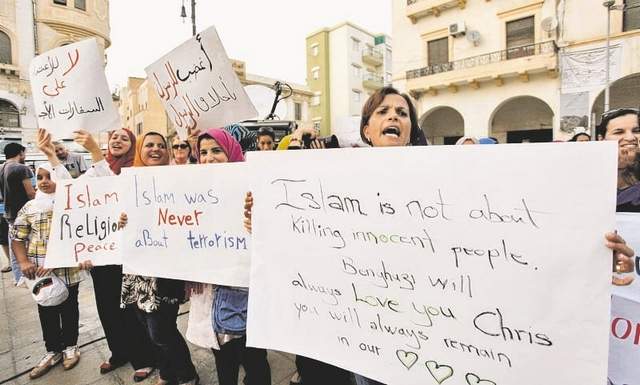 لا
للاعتداء
على
السفارات الأجن
أغضب الرسول
لأخلاق الرسول
Islam
Religion
Peace
Islam was
Never
about terrorism
Islam is not about
Killing innocent people.
Bunghazi will
always Love you Chris
you will always remain
in our